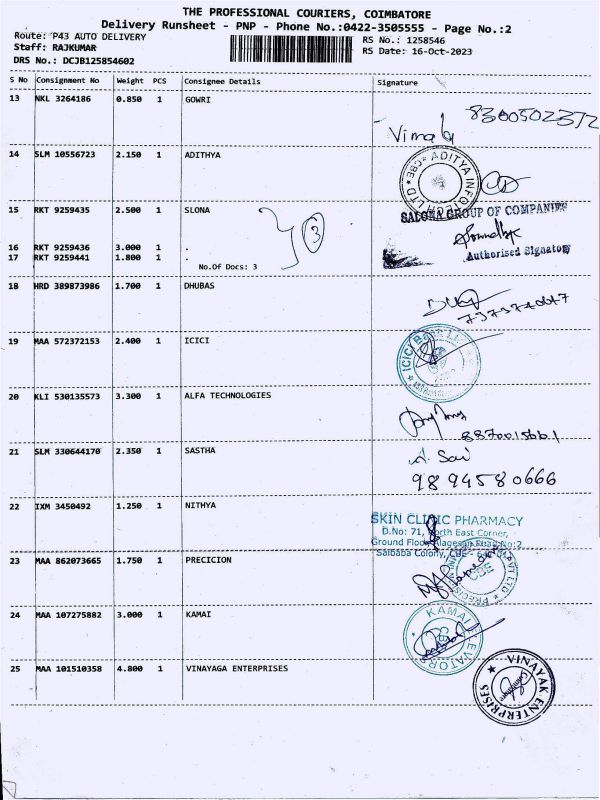 THE PROFESSIONAL COURIERS, COIMBATORE
Delivery Runsheet - PNP - Phone No.:0422-3505555 - Page No.:2
Route: P43 AUTO DELIVERY
RS No.: 1258546
Staff: RAJKUMAR
RS Date: 16-Oct-2023
DRS No.: DCJB125854602
S No Consignment No Weight PCS Consignee Details Signature
13 NKL 3264186 0.850 1 GOWRI
Vimala
14 SLM 10556723 2.150 1 ADITHYA
ADITYA INFOTECH LTD CBE
15 RKT 9259435 2.500 1 SLONA
3
SALONA GROUP OF COMPANIES
16 RKT 9259436 3.000 1 .
17 RKT 9259441 1.800 1 .
Authorised Signatory
No.Of Docs: 3
18 HRD 389873986 1.700 1 DHUBAS
19 MAA 572372153 2.400 1 ICICI
ICICI BANK
20 KLI 530135573 3.300 1 ALFA TECHNOLOGIES
21 SLM 330644170 2.350 1 SASTHA
A. Sai
9894580666
22 IXM 3450492 1.250 1 NITHYA
SKIN CLINIC PHARMACY
D.No: 71, North East Corner,
Ground Floor, Alagesan Road No:2
Saibaba Colony, CBE -
23 MAA 862073665 1.750 1 PRECICION
PVT LTD CBE
24 MAA 107275882 3.000 1 KAMAI
KAMAI ELEVATORS CBE
25 MAA 101510358 4.800 1 VINAYAGA ENTERPRISES
VINAYAK ENTERPRISES Coimbatore